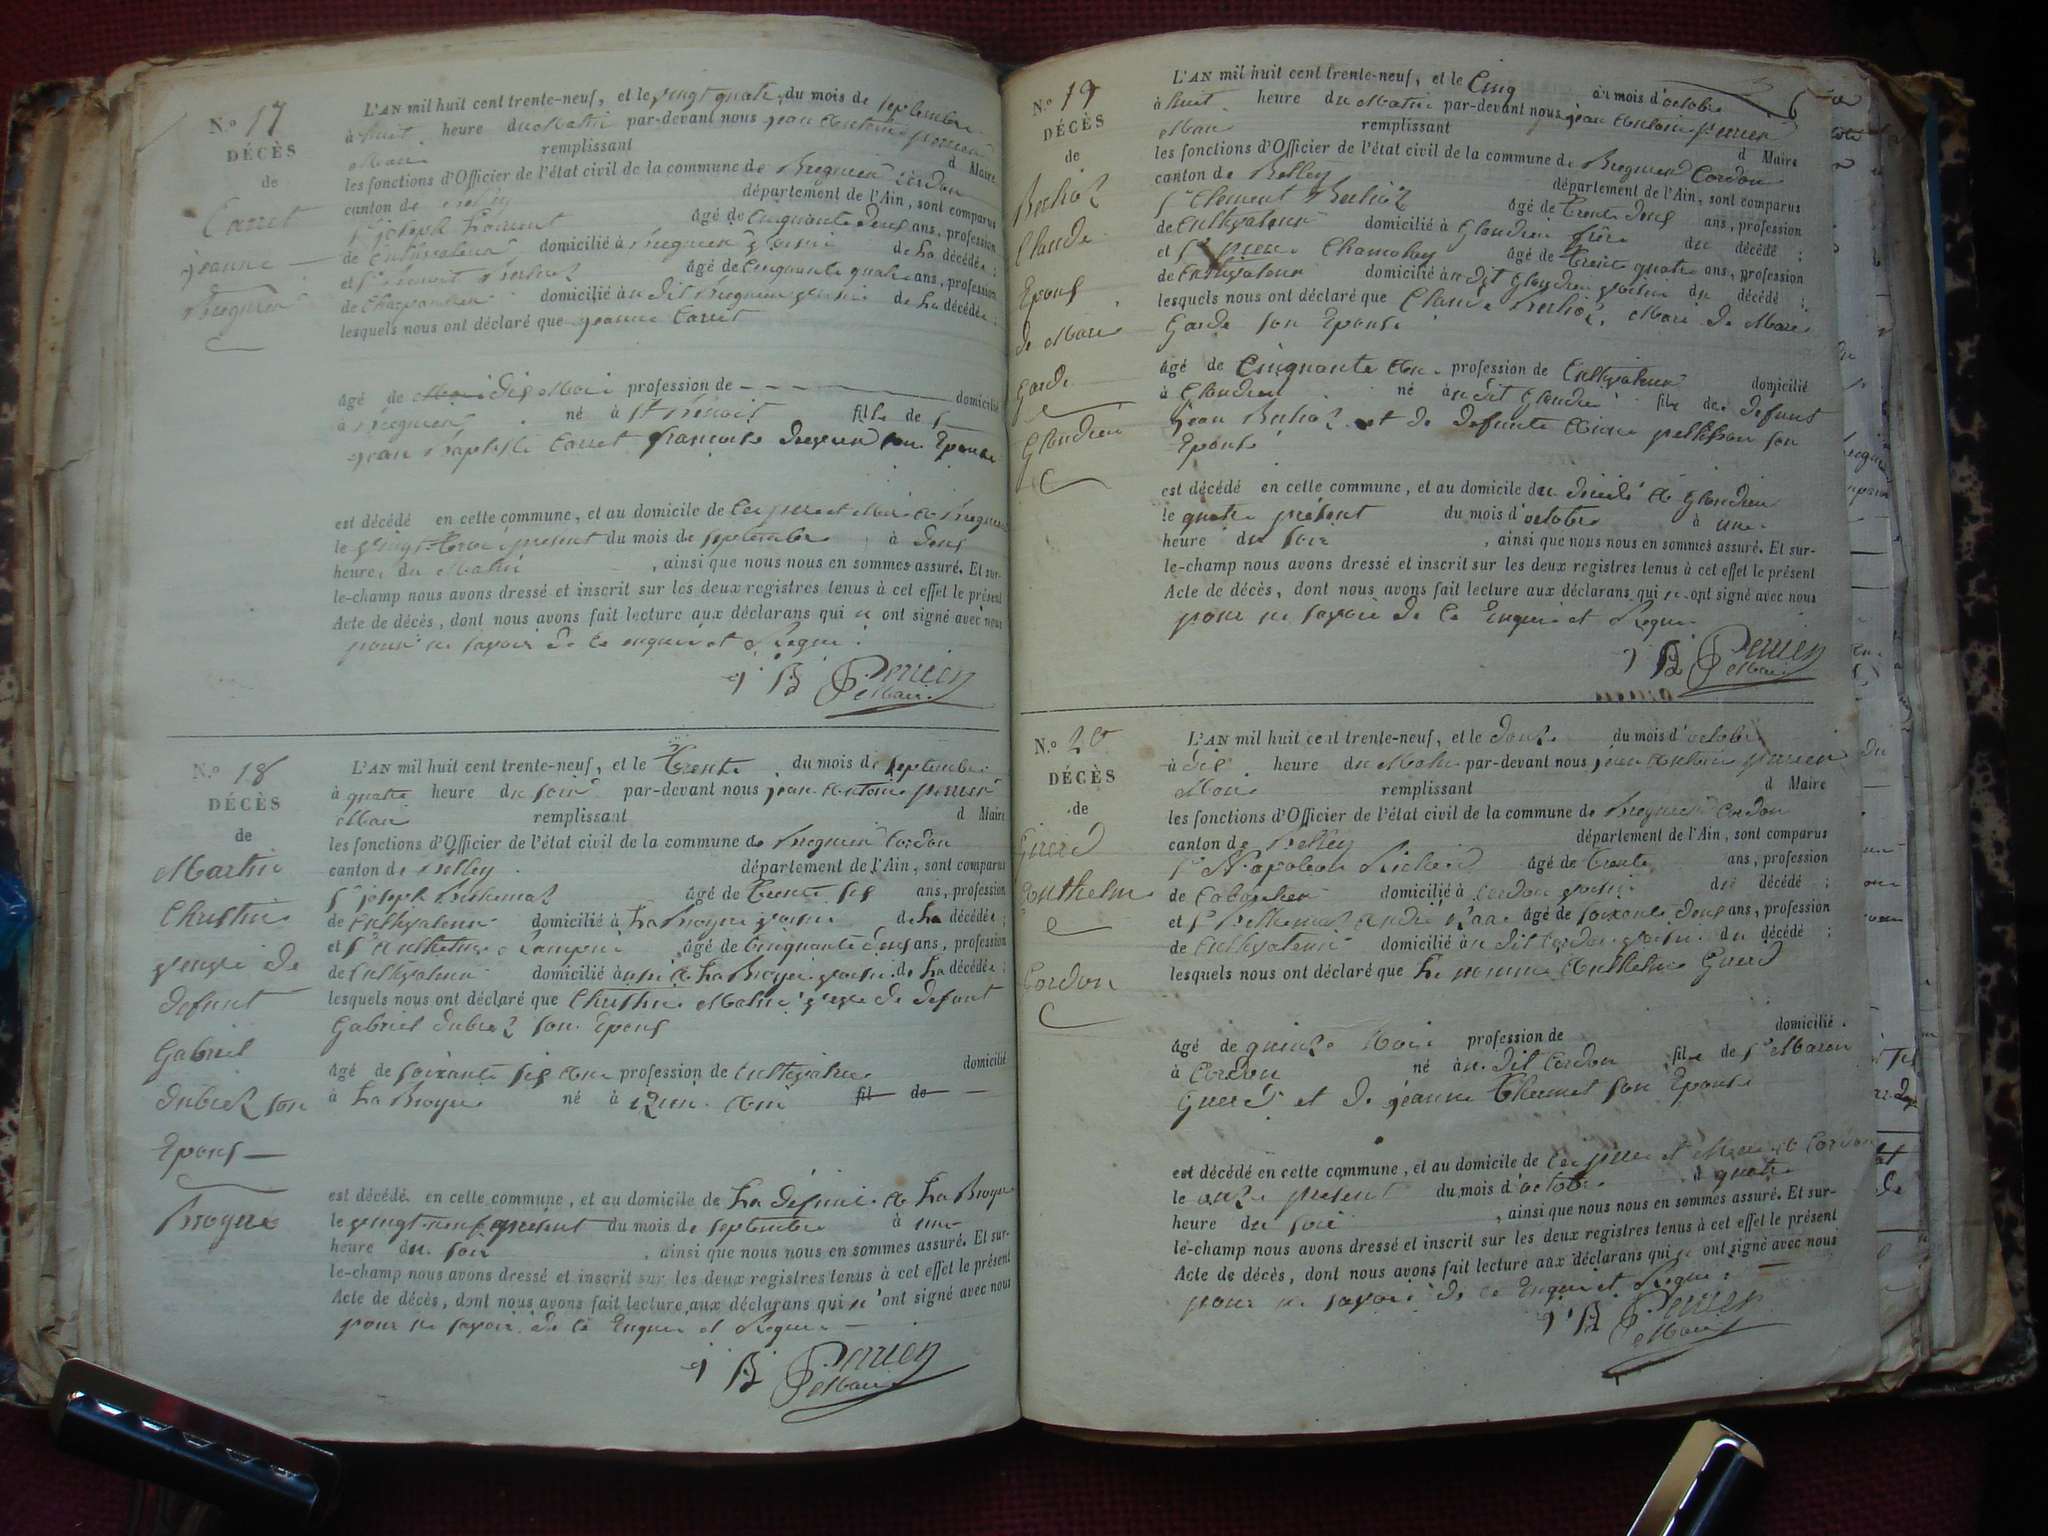 N.o 17
DÉCÈS
de
Carret
jeanne
Bregnier
L'AN mil huit cent trente-neuf, et le vingt quatre du mois de septembre
à huit heure du Matin par-devant nous jean Antoine perrier
Maire remplissant d Maire
les fonctions d'Officier de l'état civil de la commune de Bregnier Cordon
canton de Belley département de l'Ain, sont comparus
Sr joseph âgé de Cinquante deux ans, profession
de Cultivateur domicilié à Bregnier voisin de La décédée ;
et Sr Benoit Berlioz âgé de Cinquante quatre ans, profession
de Charpentier domicilié au dit Bregnier voisin de La décédée ;
lesquels nous ont déclaré que jeanne Carret
âgé de dix Mois profession de domicilié
à Bregnier né à St Benoit fille de Sr
jean Baptiste Carret françoise son Epouse
est décédé en cette commune, et au domicile de Ces pere et Mere à Bregnier
le vingt-trois present du mois de septembre à deux
heure, du Matin , ainsi que nous nous en sommes assuré. Et sur-
le-champ nous avons dressé et inscrit sur les deux registres tenus à cet effet le présent
Acte de décès, dont nous avons fait lecture aux déclarans qui n ont signé avec nous
pour ne savoir de ce enquis et Requis
j B Perrier
Maire
N.o 18
DÉCÈS
de
Martin
Christine
veuve de
defunt
Gabriel
Dubiez son
Epoux
Broyer
L'AN mil huit cent trente-neuf, et le Trente du mois de septembre
à quatre heure du soir par-devant nous jean Antoine perrier
Maire remplissant d Maire
les fonctions d'Officier de l'état civil de la commune de Bregnier Cordon
canton de Belley département de l'Ain, sont comparus
Sr joseph âgé de Trente six ans, profession
de Cultivateur domicilié à La Broyer voisin de La décédée ;
et Sr Anthelme âgé de Cinquante deux ans, profession
de Cultivateur domicilié aussi à La Broyer voisin de La décédée ;
lesquels nous ont déclaré que Christine Martin veuve de defunt
Gabriel Dubiez son Epoux
âgé de soixante six Ans profession de Cultivatrice domicilié
à La Broyer né à fil de
est décédé en cette commune, et au domicile de La défunte à La Broyer
le vingt-neuf present du mois de septembre à une
heure du soir , ainsi que nous nous en sommes assuré. Et sur-
le-champ nous avons dressé et inscrit sur les deux registres tenus à cet effet le présent
Acte de décès, dont nous avons fait lecture aux déclarans qui n'ont signé avec nous
pour ne savoir de ce Enquis et Requis
j B Perrier
Maire
N.o 19
DÉCÈS
de
Berlioz
Claude
Epoux
de Marie
Garde
Glandieu
L'AN mil huit cent trente-neuf, et le Cinq du mois d'octobre
à huit heure du Matin par-devant nous jean Antoine perrier
Maire remplissant d Maire
les fonctions d'Officier de l'état civil de la commune de Bregnier Cordon
canton de Belley département de l'Ain, sont comparus
Sr Clement Berlioz âgé de Trente deux ans, profession
de Cultivateur domicilié à Glandieu frère du décédé ;
et Sr pierre Chamolay âgé de Trente quatre ans, profession
de Cultivateur domicilié au dit Glandieu voisin du décédé ;
lesquels nous ont déclaré que Claude Berlioz, Mari de Marie
Garde son Epouse
âgé de Cinquante Ans profession de Cultivateur domicilié
à Glandieu né au dit Glandieu fils de defunt
jean Berlioz et de defunte pellisson son
Epouse
est décédé en cette commune, et au domicile du décédé à Glandieu
le quatre présent du mois d'octobre à une
heure du soir , ainsi que nous nous en sommes assuré. Et sur-
le-champ nous avons dressé et inscrit sur les deux registres tenus à cet effet le présent
Acte de décès, dont nous avons fait lecture aux déclarans qui n ont signé avec nous
pour ne savoir de ce Enquis et Requis
j B Perrier
Maire
N.o 20
DÉCÈS
de
Guerd
Anthelme
Cordon
L'AN mil huit cent trente-neuf, et le douze du mois d'octobre
à dix heure du Matin par-devant nous jean Antoine perrier
Maire remplissant d Maire
les fonctions d'Officier de l'état civil de la commune de Bregnier Cordon
canton de Belley département de l'Ain, sont comparus
Sr Napoleon âgé de Trente ans, profession
de domicilié à Cordon voisin du décédé ;
et Sr âgé de soixante deux ans, profession
de Cultivateur domicilié au dit Cordon voisin du décédé ;
lesquels nous ont déclaré que Le nommé Anthelme Guerd
âgé de quinze Mois profession de domicilié
à Cordon né au dit Cordon fils de Sr
Guerd et de jeanne son Epouse
est décédé en cette commune, et au domicile de Ces pere et Mere à Cordon
le onze present du mois d'octobre à quatre
heure du soir , ainsi que nous nous en sommes assuré. Et sur-
le-champ nous avons dressé et inscrit sur les deux registres tenus à cet effet le présent
Acte de décès, dont nous avons fait lecture aux déclarans qui n ont signé avec nous
pour ne savoir de ce Enquis et Requis
j B Perrier
Maire